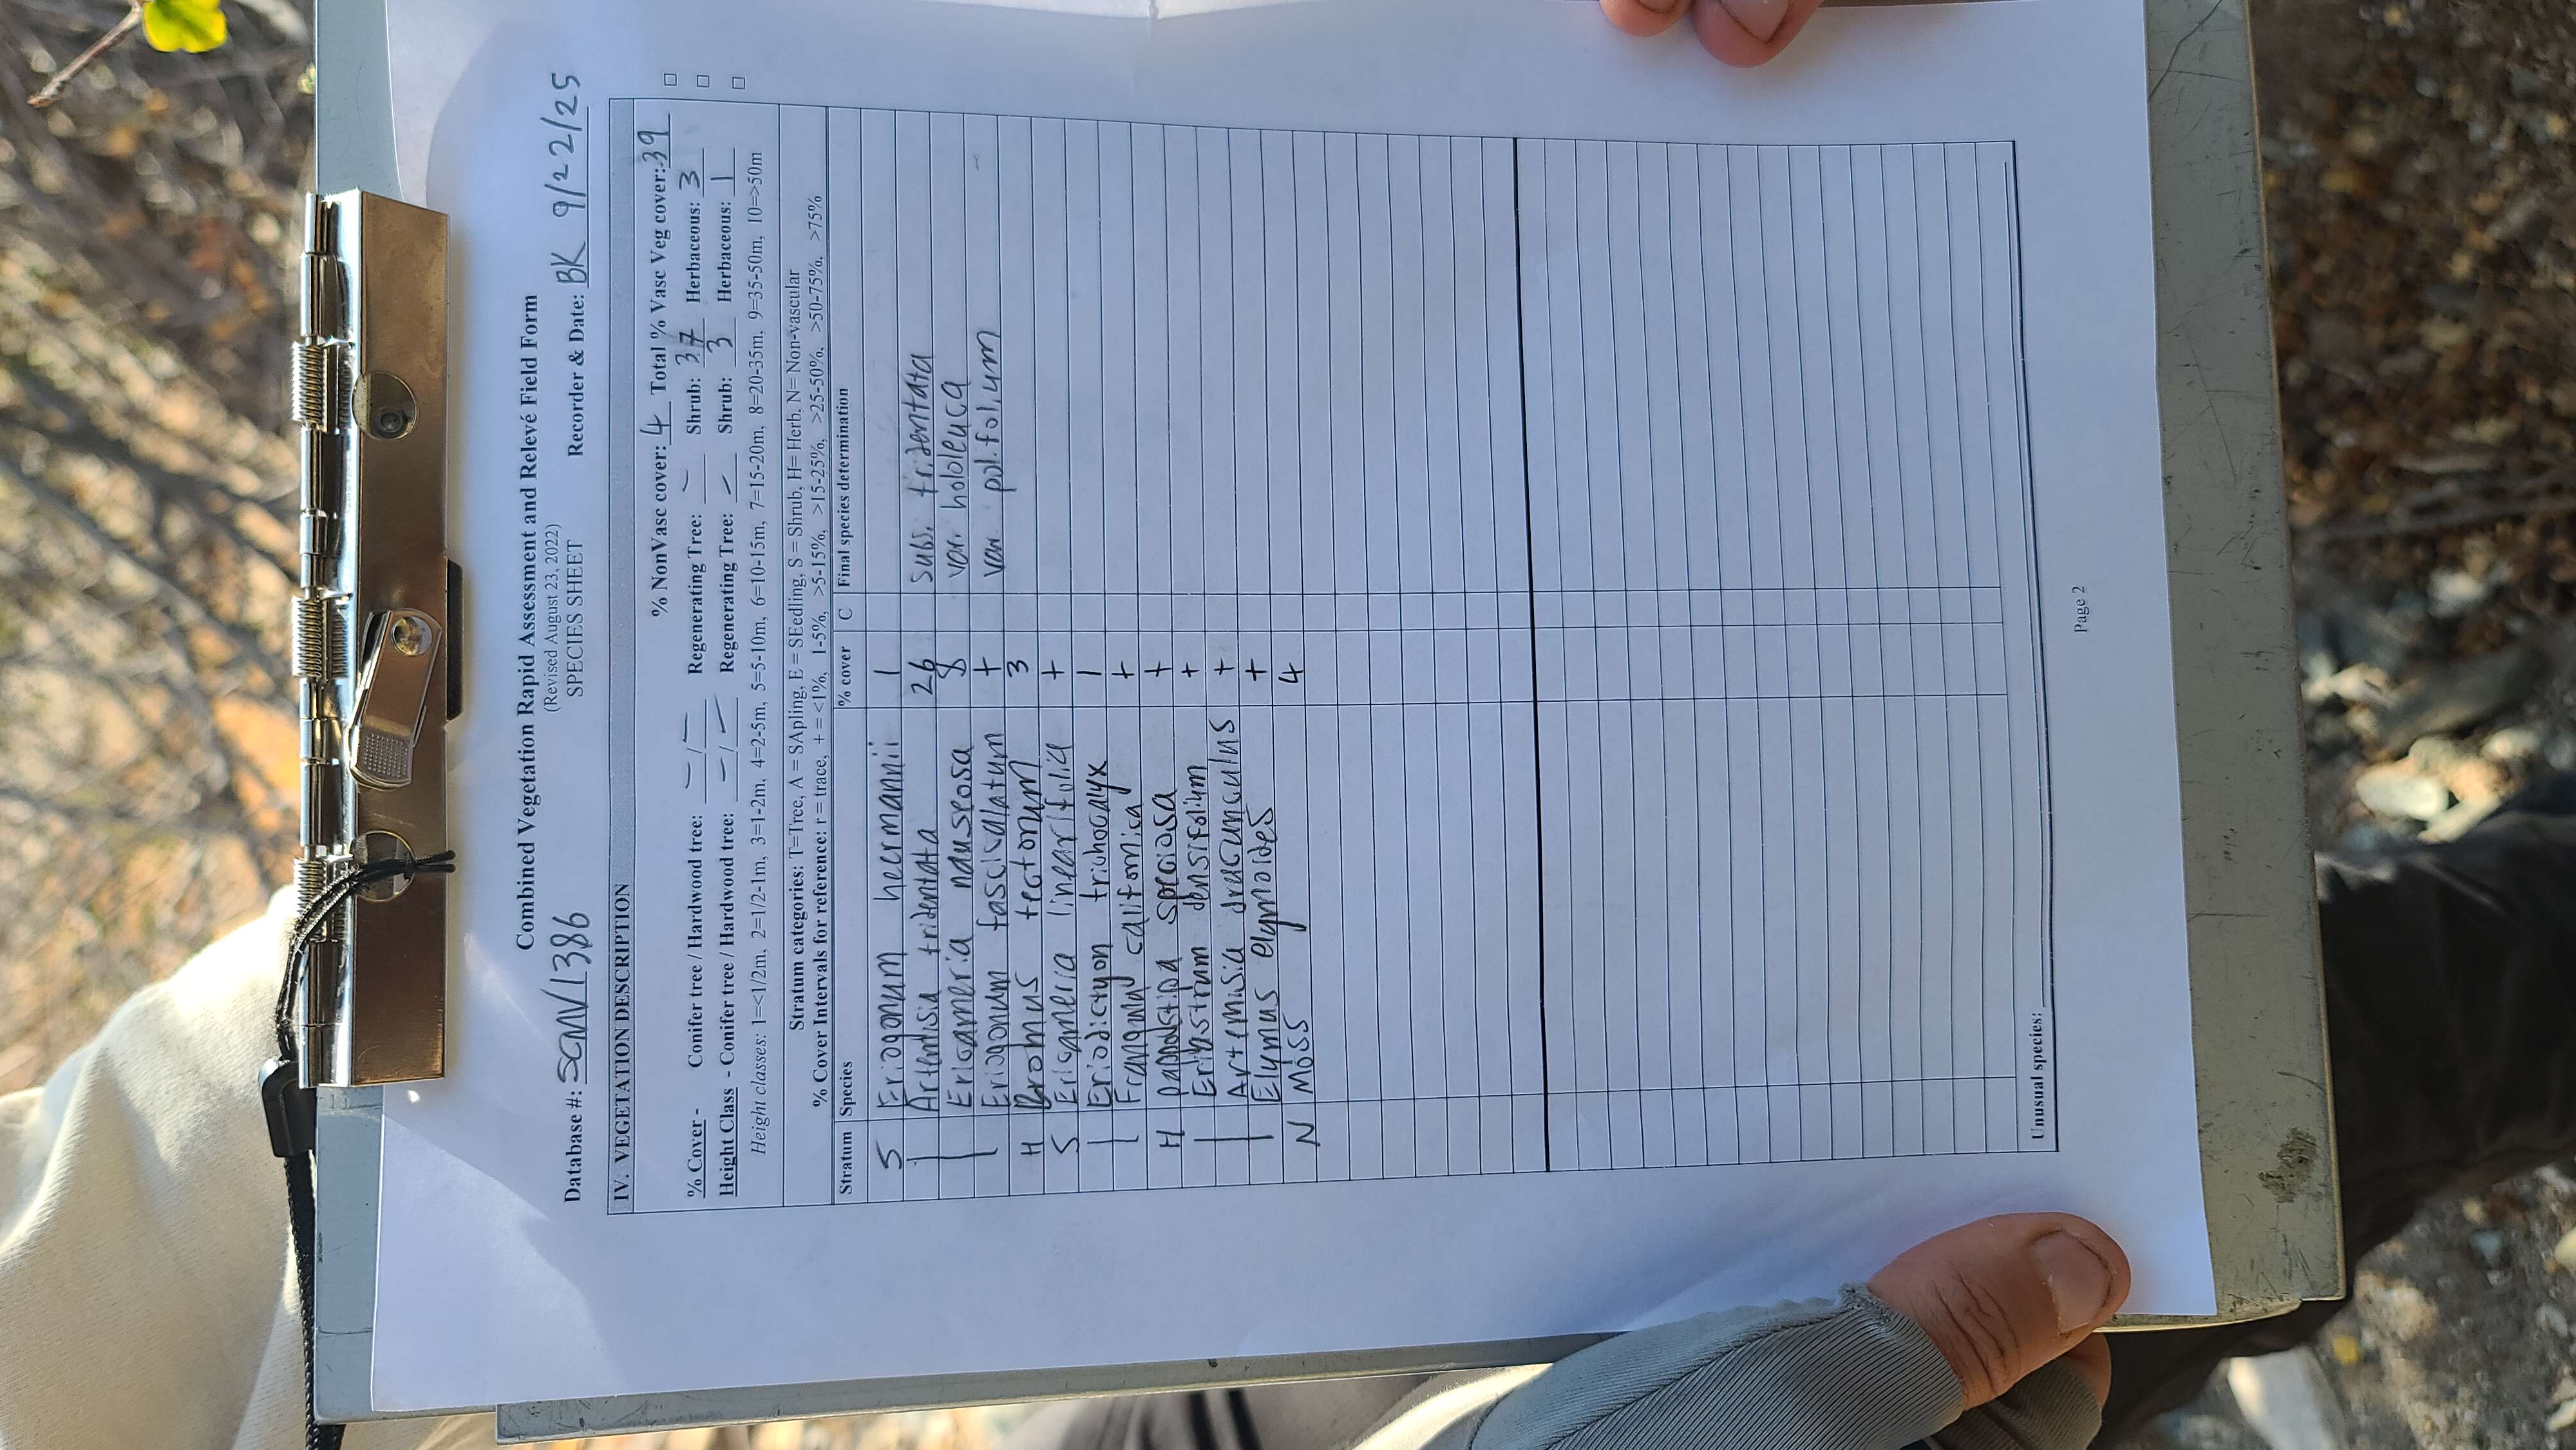 Combined Vegetation Rapid Assessment and Relevé Field Form
(Revised August 23, 2022)
Database #: SCNV1386 SPECIES SHEET Recorder & Date: BK 9/22/25
IV. VEGETATION DESCRIPTION
% NonVasc cover: 4 Total % Vasc Veg cover: 39
% Cover - Conifer tree / Hardwood tree: - / - Regenerating Tree: - Shrub: 37 Herbaceous: 3
Height Class - Conifer tree / Hardwood tree: - / - Regenerating Tree: - Shrub: 3 Herbaceous: 1
Height classes: 1=<1/2m, 2=1/2-1m, 3=1-2m, 4=2-5m, 5=5-10m, 6=10-15m, 7=15-20m, 8=20-35m, 9=35-50m, 10=>50m
Stratum categories: T=Tree, A = SApling, E = SEedling, S = Shrub, H= Herb, N= Non-vascular
% Cover Intervals for reference: r = trace, + = <1%, 1-5%, >5-15%, >15-25%, >25-50%, >50-75%, >75%
Stratum Species % cover C Final species determination
S Eriogonum heermannii 1
| Artemisia tridentata 26 subs. tridentata
| Ericameria nauseosa 8 var. hololeuca
| Eriogonum fasciculatum + var. polifolium
H Bromus tectorum 3
S Ericameria linearifolia +
| Eriodictyon trichocalyx 1
| Frangula californica +
H Pappostipa speciosa +
| Eriastrum densifolium +
| Artemisia dracunculus +
| Elymus elymoides +
N Moss 4
Unusual species:
Page 2